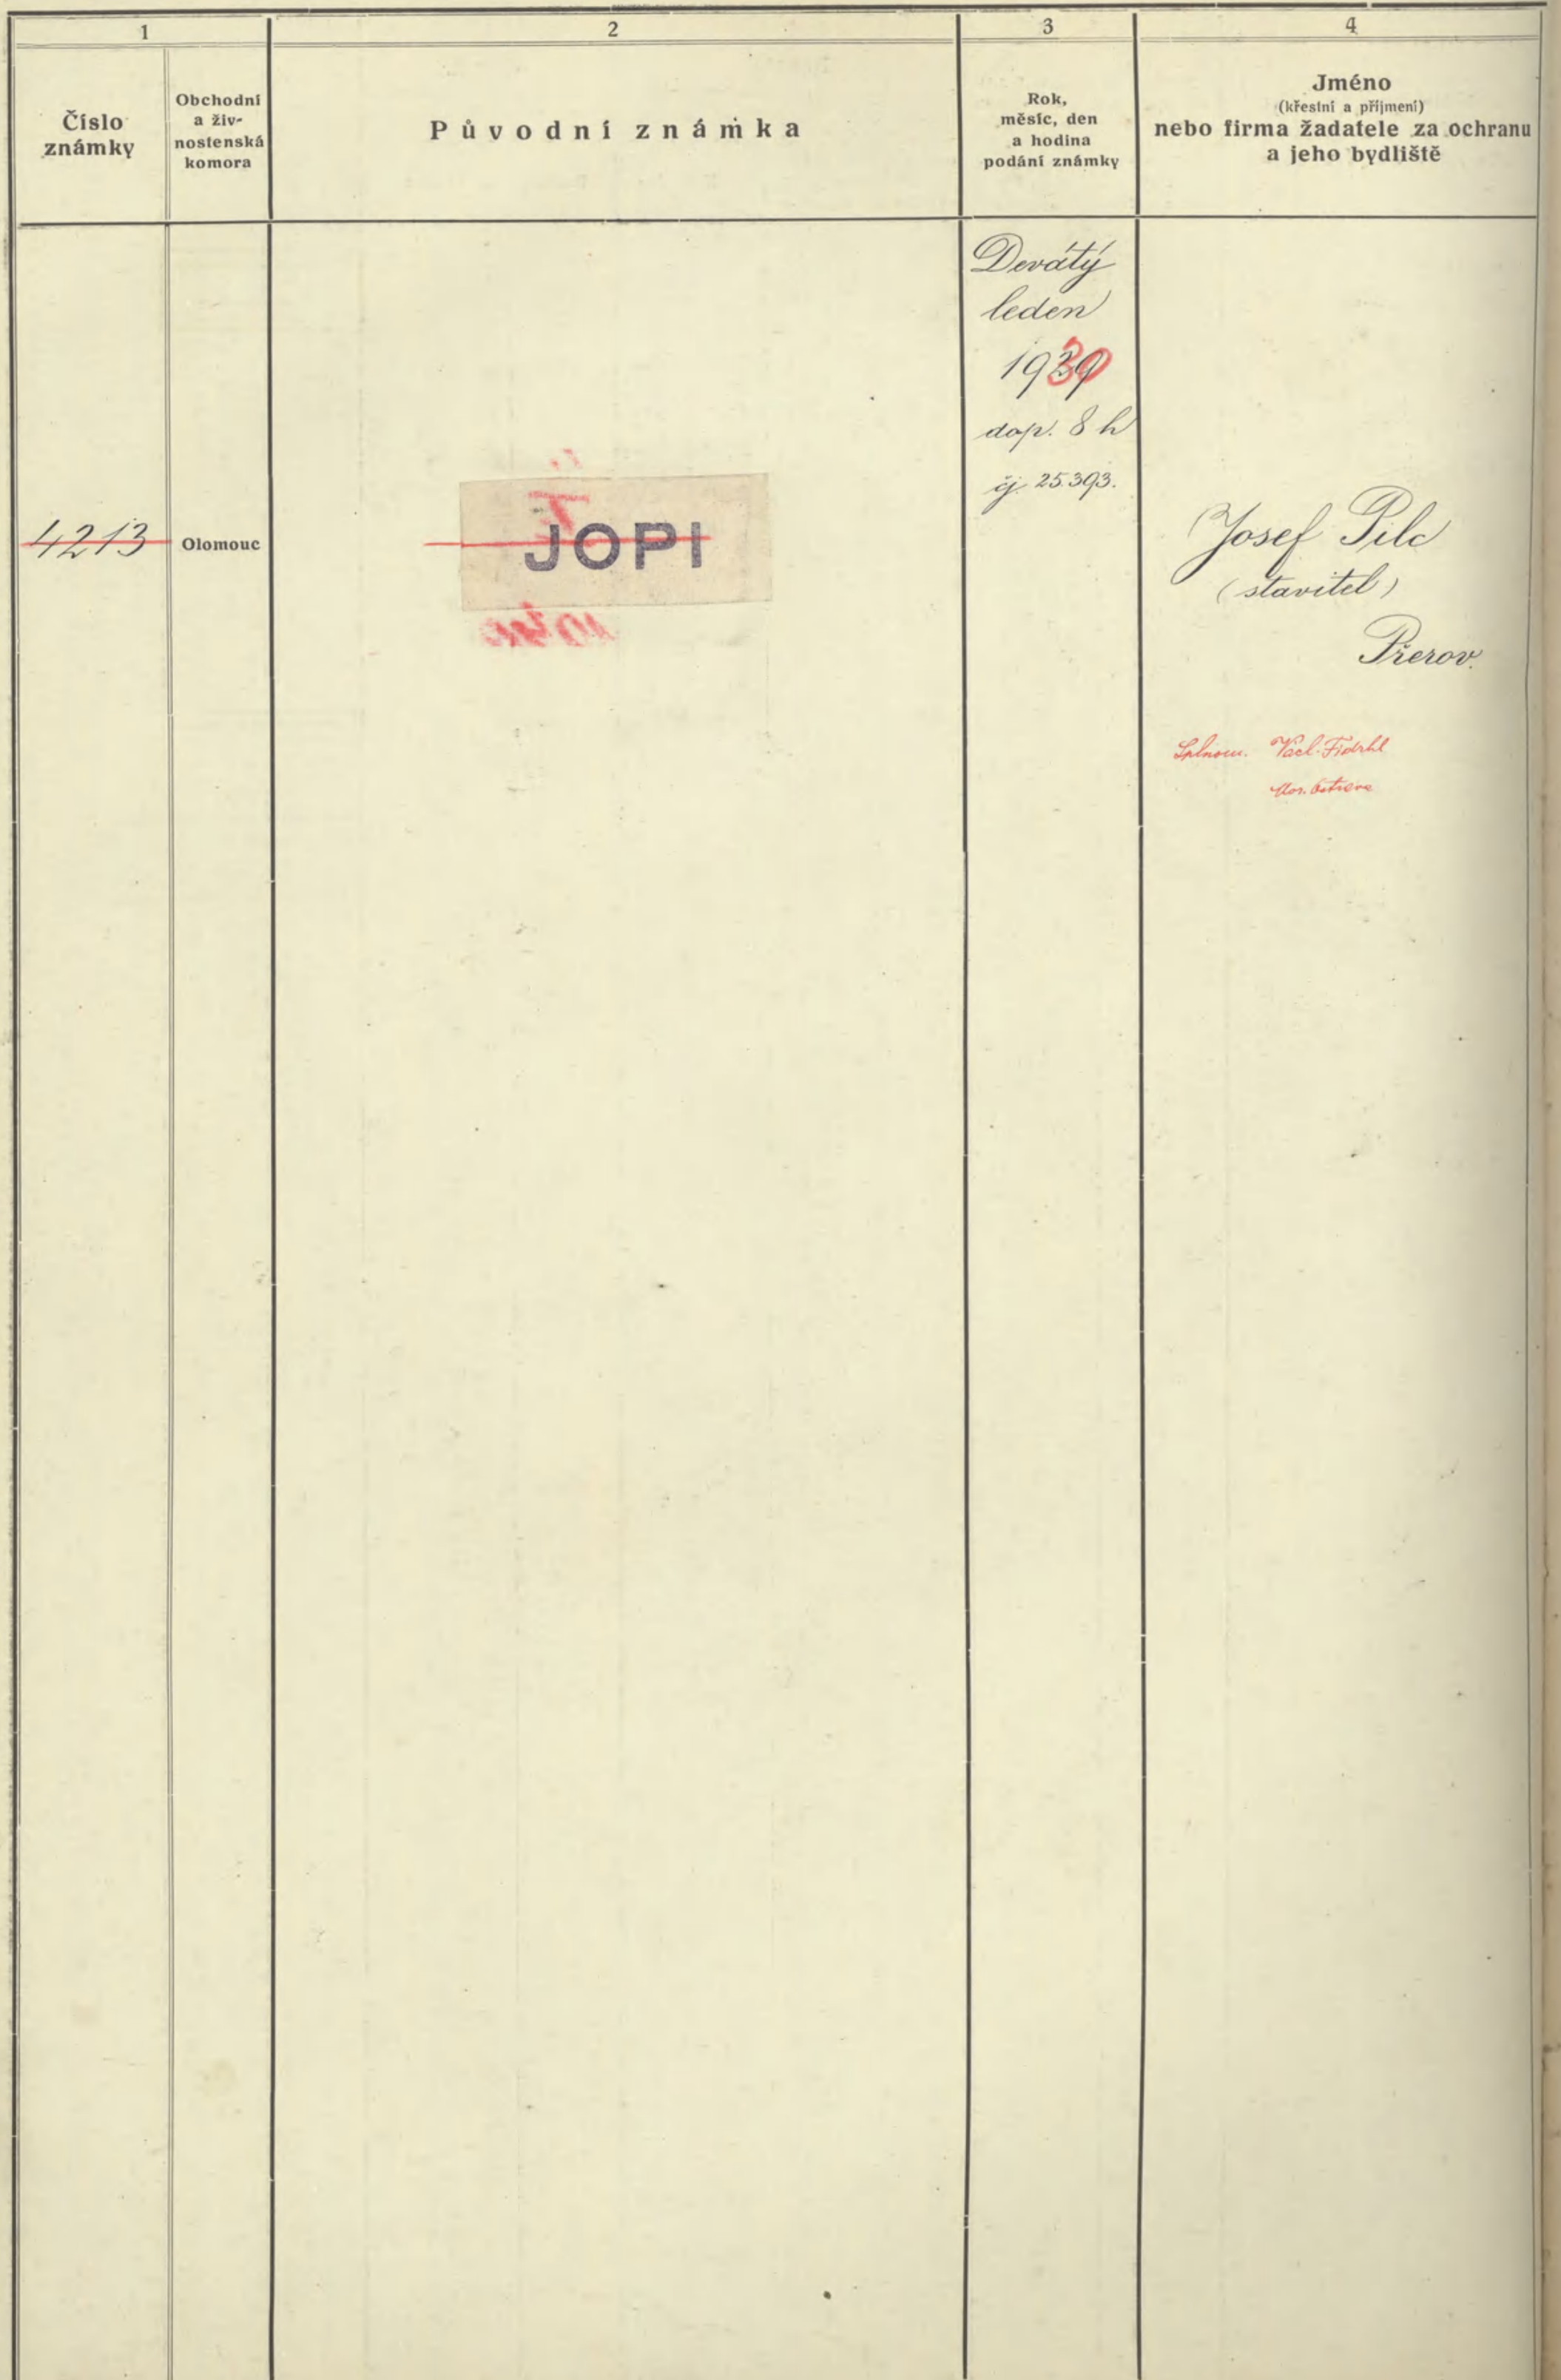 1
2
3
4
Číslo
známky
Obchodní
a živ-
nostenská
komora
Původní známka
Rok,
měsíc, den
a hodina
podání známky
Jméno
(křestní a příjmení)
nebo firma žadatele za ochranu
a jeho bydliště
4213
Olomouc
JOPI
Devátý
leden
1930
dop. 8 h
čj. 25.393.
Josef Pilc
(stavitel)
Přerov.
Splnom. Václ. Fidrhl
Mor. Ostrava